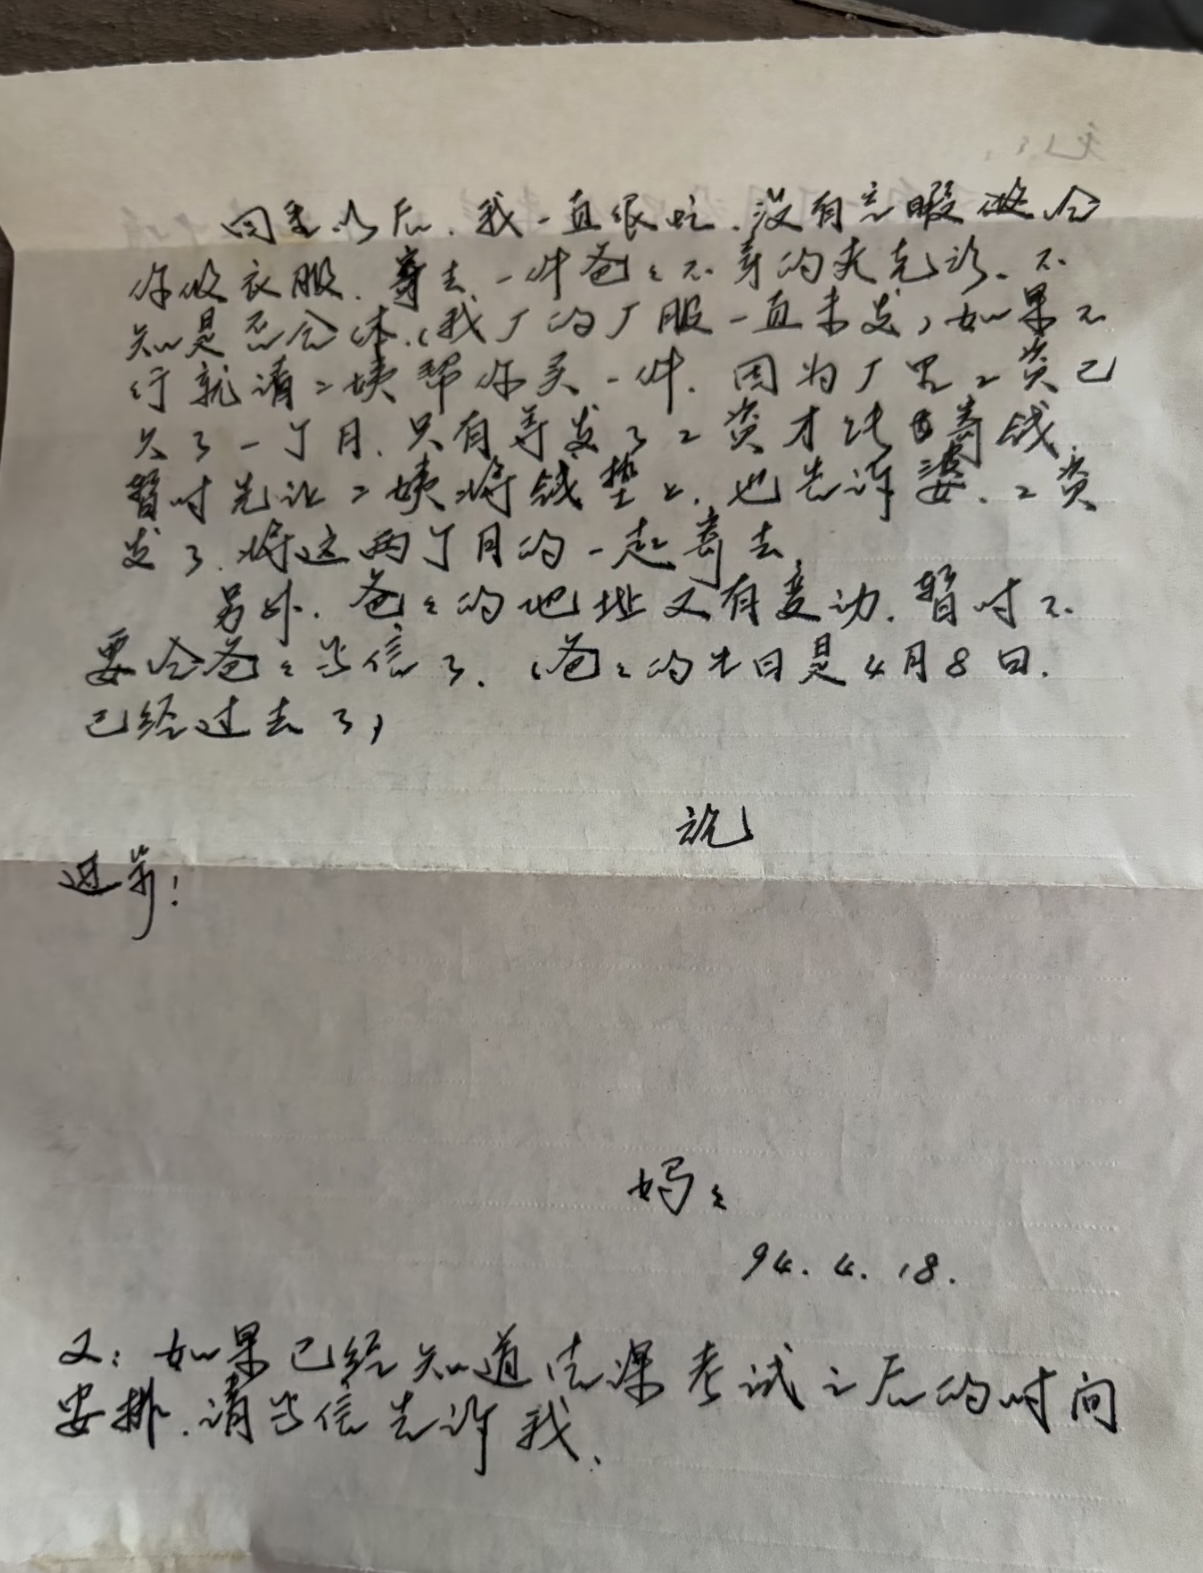 回来以后,我一直很忙,没有空暇做给
你收衣服,寄去一件爸々不穿的夹克衫,不
知是否合体,(我厂的厂服一直未发)如果不
行就请二姨帮你买一件,因为厂里工资已
欠了一个月,只有等发了工资才能寄钱,
暂时先让二姨将钱垫上,也告诉婆,工资
发了,将这两个月的一起寄去,
另外,爸々的地址又有变动,暂时不
要给爸々写信了,(爸々的生日是4月8日,
已经过去了)
祝
进步!
妈々
94.4.18.
又:如果已经知道结课考试之后的时间
安排,请写信告诉我,